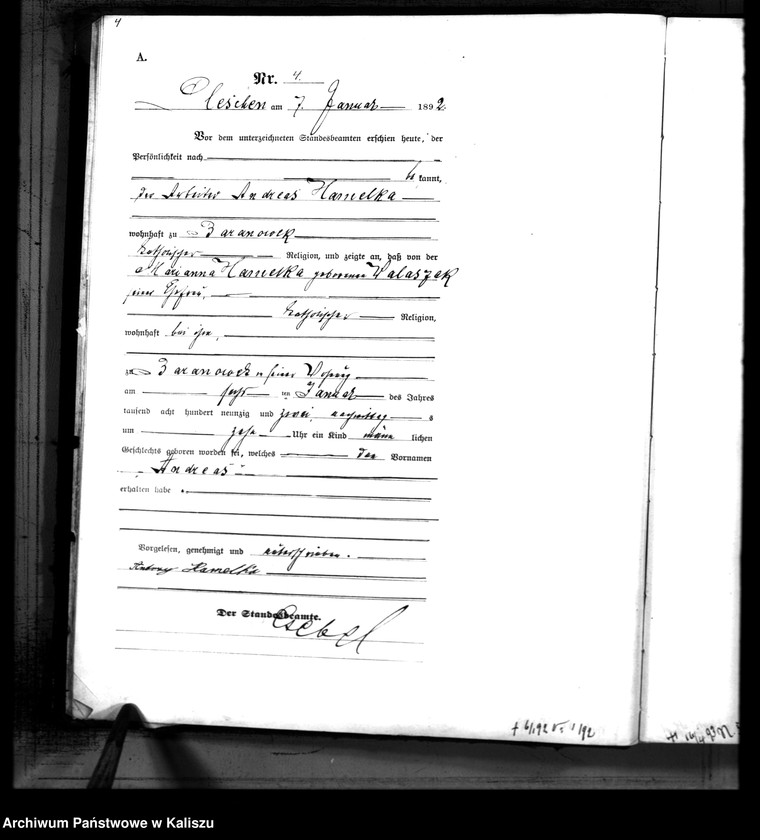 4
A.
Nr. 4.
Pleschen am 7. Januar 1892
Vor dem unterzeichneten Standesbeamten erschien heute, der
Persönlichkeit nach
be kannt,
der Arbeiter Andreas Hamelka
wohnhaft zu Baranowek
katholischer Religion, und zeigte an, daß von der
Marianna Hamelka geborenen Walaszek
seiner Ehefrau,
katholischer Religion,
wohnhaft bei ihm,
zu Baranowek in seiner Wohnung
am sechs ten Januar des Jahres
tausend acht hundert neunzig und zwei, nachmittag s
um zehn Uhr ein Kind männ lichen
Geschlechts geboren worden sei, welches den Vornamen
Andreas
erhalten habe .
Vorgelesen, genehmigt und unterschrieben.
Hamelka
Der Standesbeamte.
† 6/1 92 № 1/92
Archiwum Państwowe w Kaliszu